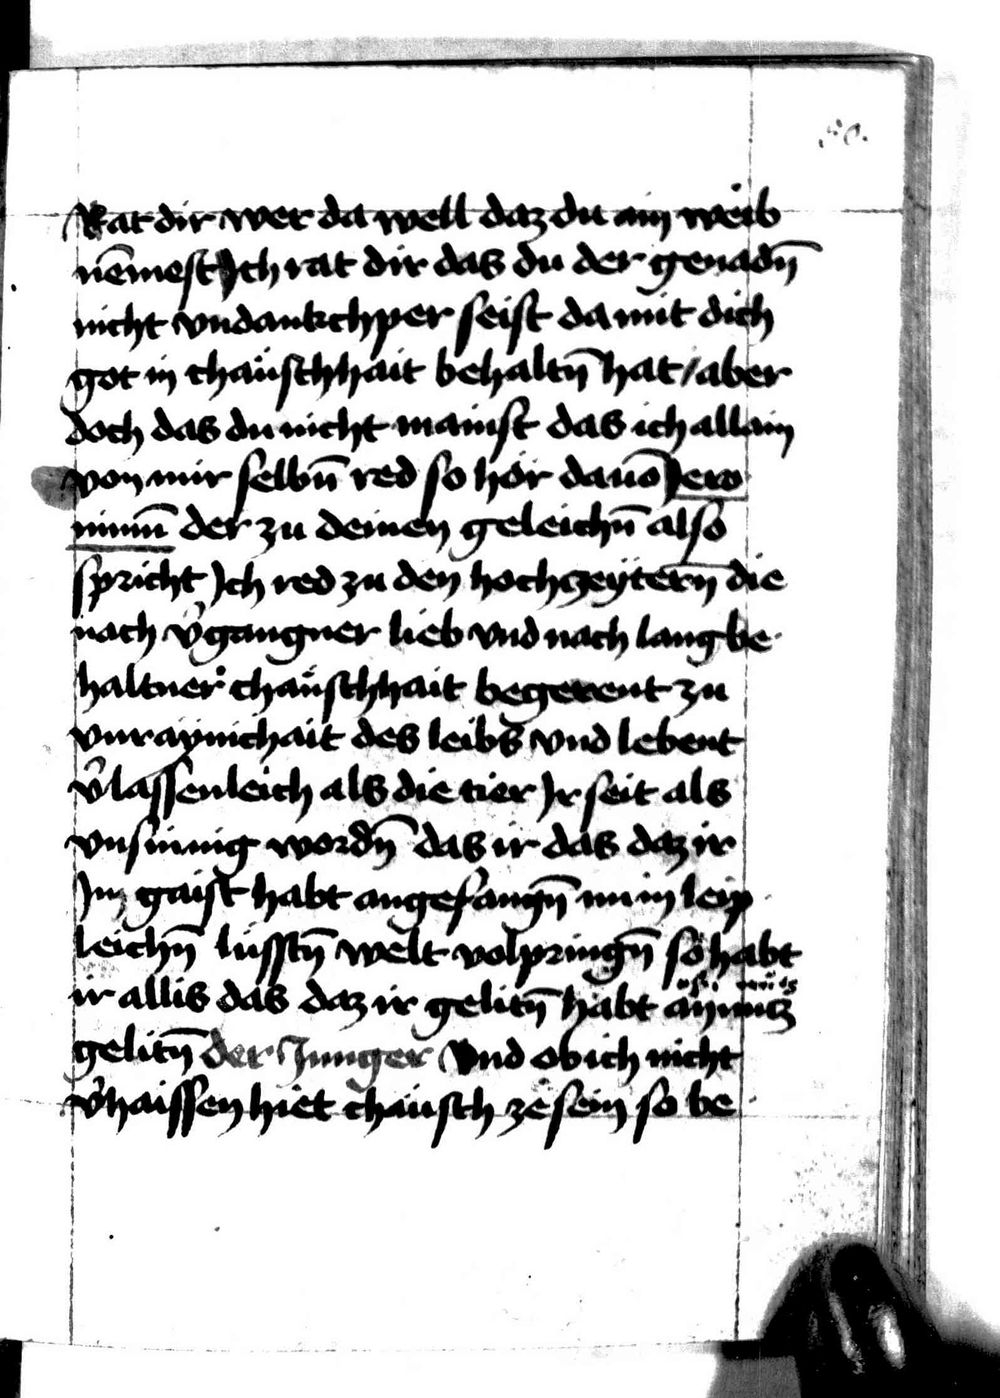 50.
Rat dir wer da well daz du ain weib
nēmest Ich rat dir das du der genadn̄
nicht vndankchper seist da mit dich
got in chaüschhait behaltn̄ hat / aber
doch das du nicht mainst das ich allain
von mir selbn̄ red so hör dauō Jero
nimū der zu deinen geleichn̄ also
spricht Ich red zu den hochzeÿtern̄ die
nach v̉gangner lieb vnd nach lang be
haltner chaüschhait begerent zu
vnraÿnichait des leibs vnd lebent
v̉lassenleich als die tier Ir seit als
vnsinnig wordn̄ das ir das daz ir
Im gaist habt angefangn̄ nu in leip
leichn̄ lüsstn̄ welt volpringn̄ so habt
ir allis das daz ir gelitn̄ habt
gelitn̄ der Junger Vnd ob ich nicht
v̉haissen hiet chäusch ze sein so be